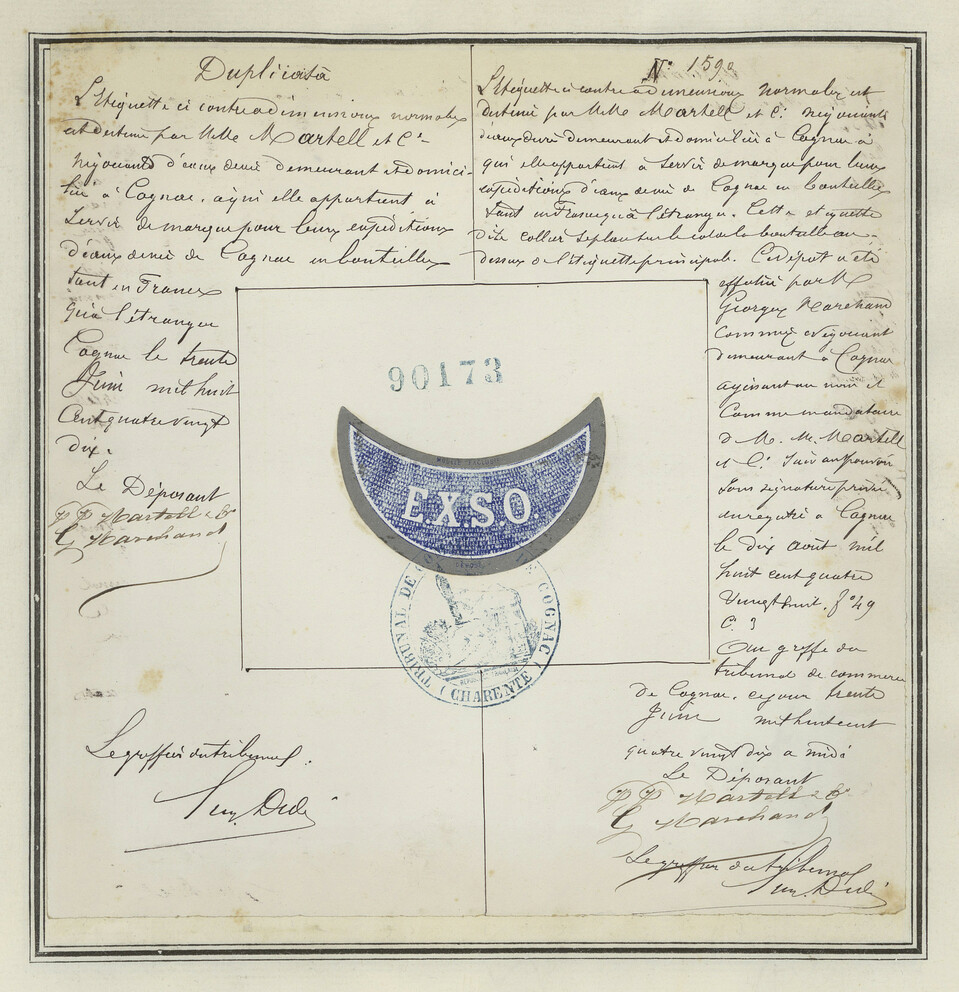 Duplicata
L'Etiquette ci contre a dimensions normales
est destiné par MMrs Martell et Cie
Négociants d'eaux de vie demeurant et domici-
lié à Cognac, à qui elle appartient à
servir de marque pour leurs expéditions
d'eaux de vie de Cognac en bouteilles
tant en France
qu'à l'étranger
Cognac le trente
Juin mil huit
cent quatre vingt
dix.
Le Déposant
PP Martell & Co
G Marchand
Le greffier du tribunal.
N° 1590
L'Etiquette ci contre a dimensions normales est
destiné par MMrs Martell et Cie Négociants
d'eaux de vie demeurant et domicilié à Cognac à
qui elle appartient à servir de marque pour leurs
expéditions d'eaux de vie de Cognac en bouteilles
tant en France qu'à l'étranger. Cette etiquette
dite collier se place sur le col de la bouteille au-
dessus de l'étiquette principale. Ce dépot a été
effectué par M
Georges Marchand
commis négociant
demeurant à Cognac
agissant au nom et
comme mandataire
de M.M. Martell
et Cie suivant pouvoir
sous signature privée
enregistré à Cognac
le dix août mil
huit cent quatre
vingt huit. f° 49
C. 3
Au greffe du
tribunal de commerce
de Cognac, ce jour trente
Juin mil huit cent
quatre vingt dix a midi
Le Déposant
PP Martell & Co
G Marchand
Le greffier du tribunal
90173
E.X.S.O.
DÉPOSÉ
TRIBUNAL DE COGNAC
(CHARENTE)